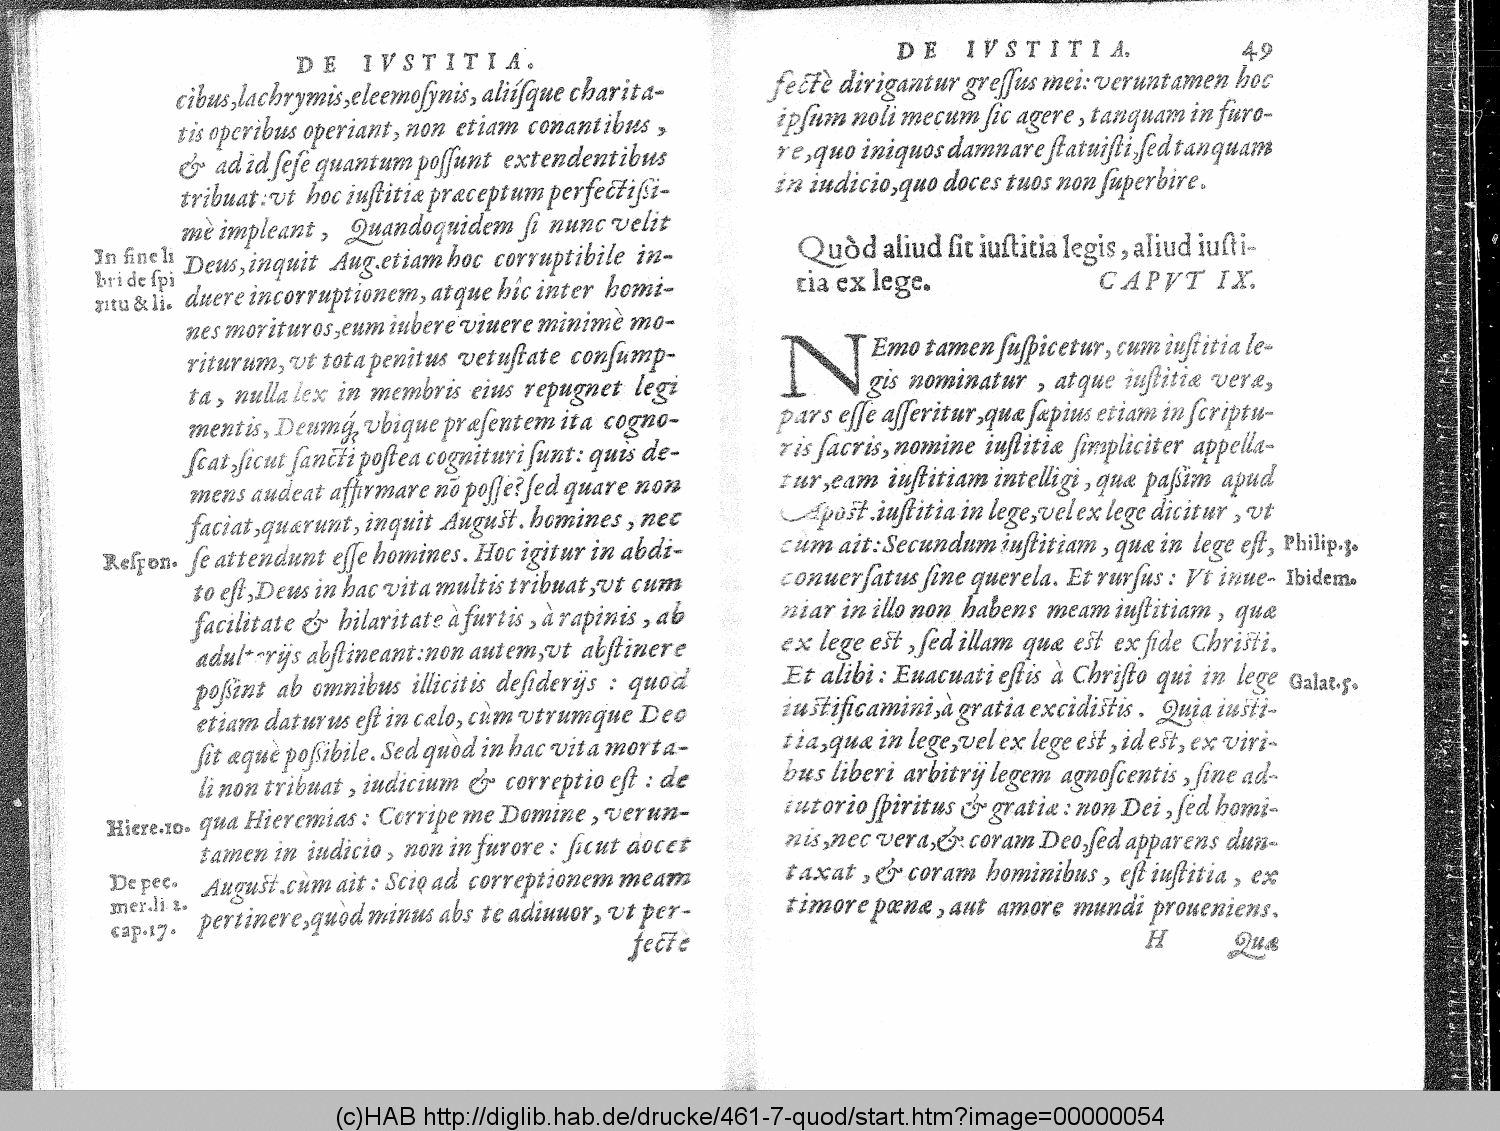 DE IVSTITIA.
cibus,lachrymis,eleemoſynis, aliíſque charita-
tis operibus operiant, non etiam conantibus ,
& ad id ſeſe quantum poſſunt extendentibus
tribuat: vt hoc iuſtitiæ præceptum perfectißi-
mè impleant , Quandoquidem ſi nunc velit
In fine li
bri de ſpi
ritu & li.
Deus, inquit Aug.etiam hoc corruptibile in-
duere incorruptionem, atque hîc inter homi-
nes morituros,eum iubere viuere minimè mo-
riturum, vt tota penitus vetuſtate conſump-
ta , nulla lex in membris eius repugnet legi
mentis, Deumq́; vbique præſentem ita cogno-
ſcat,ſicut ſancti poſtea cognituri ſunt: quis de-
mens audeat affirmare nō poſſe? ſed quare non
faciat,quærunt, inquit Auguſt. homines , nec
Reſpon.
ſe attendunt eſſe homines. Hoc igitur in abdi-
to eſt, Deus in hac vita multis tribuat,vt cum
facilitate & hilaritate à furtis , à rapinis , ab
abſtineant: non autem,vt abſtinere
poßint ab omnibus illicitis deſiderijs : quod
etiam daturus eſt in cælo, cùm vtrumque Deo
ſit æquè poßibile. Sed quòd in hac vita morta-
li non tribuat , iudicium & correptio eſt : de
Hiere.10.
qua Hieremias : Corripe me Domine , verun-
tamen in iudicio , non in furore : ſicut docet
De pec.
mer.li 2.
cap.17.
Auguſt.cùm ait : Scio ad correptionem meam
pertinere,quòd minus abs te adiuuor, vt per-
fectè
DE IVSTITIA. 49
fectè dirigantur greſſus mei: veruntamen hoc
ipſum noli mecum ſic agere , tanquam in furo-
re,quo iniquos damnare ſtatuiſti,ſed tanquam
in iudicio,quo doces tuos non ſuperbire.
Quòd aliud ſit iuſtitia legis, aliud iuſti-
tia ex lege. CAPVT IX.
NEmo tamen ſuſpicetur, cum iuſtitia le-
gis nominatur , atque iuſtitiæ veræ,
pars eſſe aſſeritur,quæ ſæpius etiam in ſcriptu-
ris ſacris, nomine iuſtitiæ ſimpliciter appella-
tur,eam iuſtitiam intelligi , quæ paßim apud
Apoſt.iuſtitia in lege,vel ex lege dicitur , vt
cùm ait: Secundum iuſtitiam, quæ in lege eſt,
Philip.3.
conuerſatus ſine querela. Et rurſus : Vt inue-
Ibidem.
niar in illo non habens meam iuſtitiam , quæ
ex lege eſt , ſed illam quæ eſt ex fide Chriſti.
Et alibi : Euacuati eſtis à Chriſto qui in lege
Galat.5.
iuſtificamini,à gratia excidiſtis . Quia iuſti-
tia,quæ in lege,vel ex lege eſt, id eſt, ex viri-
bus liberi arbitrij legem agnoſcentis , ſine ad-
iutorio ſpiritus & gratiæ : non Dei , ſed homi-
nis,nec vera,& coram Deo,ſed apparens dun-
taxat , & coram hominibus, eſt iuſtitia , ex
timore pœnæ , aut amore mundi proueniens.
H Quæ
(c)HAB http://diglib.hab.de/drucke/461-7-quod/start.htm?image=00000054